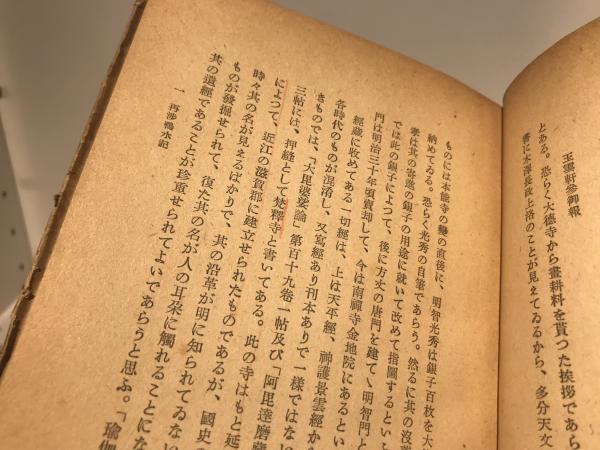 王雲軒參御報
とある。恐らく大德寺から晝耕料を貰つた挨拶であら
書に木澤長政上洛のことが見えてゐるから、多分天文
ものには本能寺の變の直後に、明智光秀は銀子百枚を大
納めてゐる。恐らく光秀の自筆であらう。然るに其の沒
衆は其の寄進の銀子の用途に就いて改めて指圖するとい
では此の銀子によつて、後に方丈の唐門を建てゝ明智門と
門は明治三十年頃賣却して、今は南禪寺金地院にあるとい
經藏に收めてある一切經は、上は天平經、神護景雲經か
各時代のものが混淆し、又寫經あり刊本ありで一樣ではない
きものでは、「大毘婆娑論」第百十九卷一帖及び「阿毘達磨
三帖には、押縫として梵釋寺と書いてある。此の寺はもと延
によつて、近江の滋賀郡に建立せられたものであるが、國史の
時々其の名が見えるばかりで、其の沿革が明に知られてゐない
ものが發掘せられて、復た其の名が人の耳朶に觸れることにな
其の遺經であることが珍重せられてよいであらうと思ふ。「瑜伽
一 再渉鴨水記